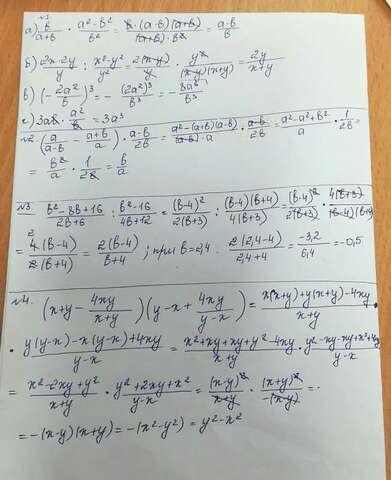 √1
а) в/(a+в) · (a²-в²)/в² = (в·(a-в)(a+в))/((a+в)·в²) = (a-в)/в
б) (2x-2y)/y : (x²-y²)/y² = 2(x-y)/y · y²/((x-y)(x+y)) = 2y/(x+y)
в) (-2a²/в)³ = -(2a²)³/в³ = -8a⁶/в³
с) 3aв · a²/в = 3a³
√2. (a/(a-в) - (a+в)/a) · (a-в)/2в = (a²-(a+в)(a-в))/((a-в)·a) · (a-в)/2в = (a²-a²+в²)/a · 1/2в =
= в²/a · 1/2в = в/a
√3. (в²-8в+16)/(2в+6) : (в²-16)/(4в+12) = (в-4)²/2(в+3) : (в-4)(в+4)/4(в+3) = (в-4)²/2(в+3) · 4(в+3)/(в-4)(в+4)
= 4(в-4)/2(в+4) = 2(в-4)/(в+4); при в=2,4. 2(2,4-4)/(2,4+4) = -3,2/6,4 = -0,5
√4. (x+y - 4xy/(x+y))(y-x + 4xy/(y-x)) = (x(x+y)+y(x+y)-4xy)/(x+y)
· (y(y-x)-x(y-x)+4xy)/(y-x) = (x²+xy+xy+y²-4xy)/(x+y) · (y²-xy-xy+x²+4xy)/(y-x)
= (x²-2xy+y²)/(x+y) · (y²+2xy+x²)/(y-x) = (x-y)²/(x+y) · (x+y)²/-(x-y) =
= -(x-y)(x+y) = -(x²-y²) = y²-x²